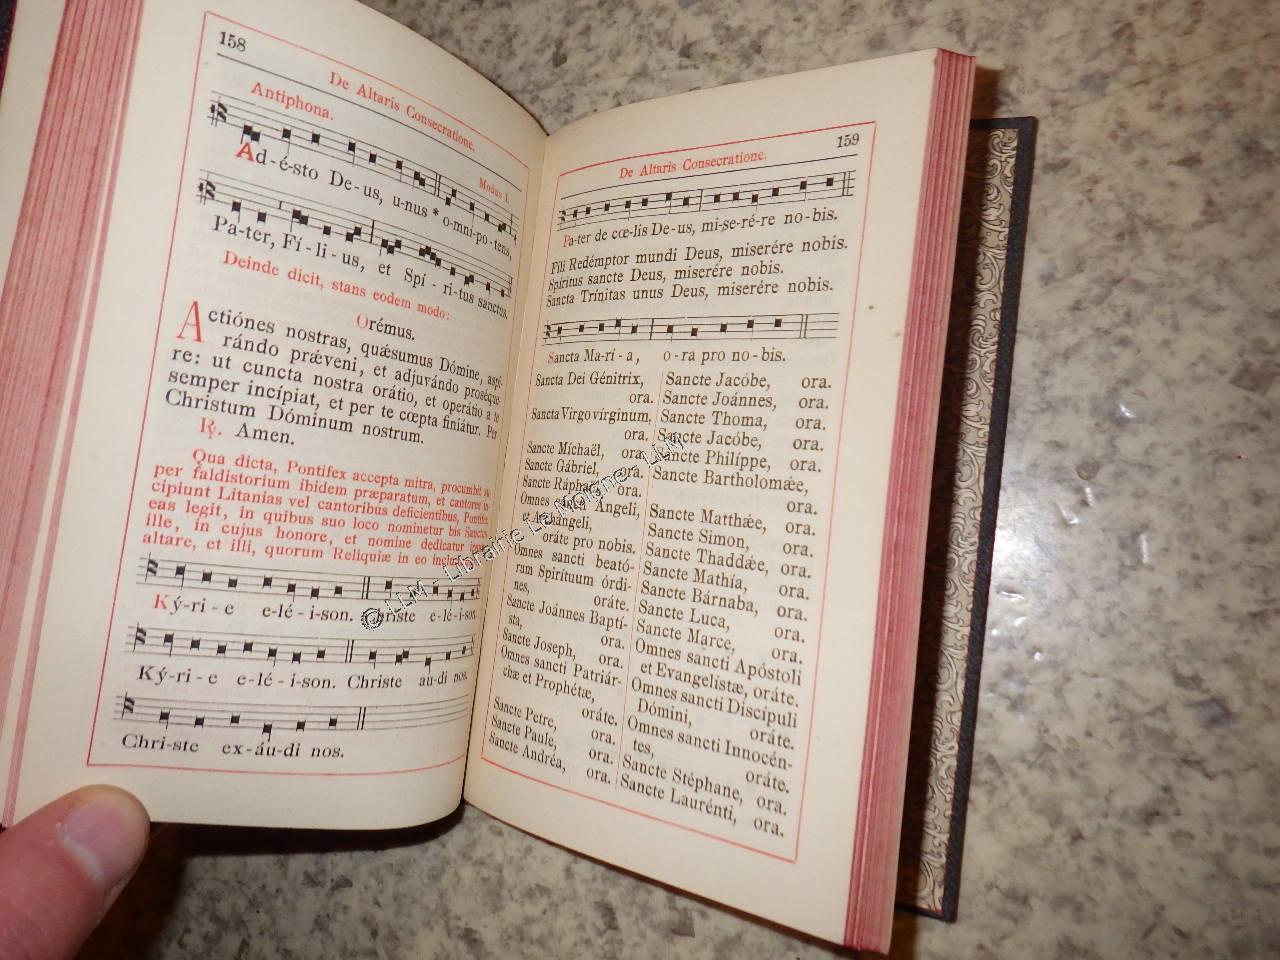 158
De Altaris Consecratione.
Antiphona.
Modus I.
Ad-é-sto De-us, u-nus * o-mni-po-tens,
Pa-ter, Fí-li-us, et Spí-ri-tus sanctus.
Deinde dicit, stans eodem modo:
Orémus.
Actiónes nostras, quǽsumus Dómine, aspi-
rándo prǽveni, et adjuvándo proséque-
re: ut cuncta nostra orátio, et operátio a te
semper incípiat, et per te cœpta finiátur. Per
Christum Dóminum nostrum.
℟. Amen.
Qua dicta, Pontifex accepta mitra, procumbit su-
per faldistorium ibidem præparatum, et cantores in-
cipiunt Litanias vel cantoribus deficientibus, Pontifex
eas legit, in quibus suo loco nominetur bis Sanctus
ille, in cujus honore, et nomine dedicatur ipsum
altare, et illi, quorum Reliquiæ in eo
Ký-ri-e e-lé-i-son. Christe e-lé-i-son.
Ký-ri-e e-lé-i-son. Christe au-di nos.
Chri-ste ex-áu-di nos.
159
De Altaris Consecratione.
Pa-ter de cœ-lis De-us, mi-se-ré-re no-bis.
Fili Redémptor mundi Deus, miserére nobis.
Spíritus sancte Deus, miserére nobis.
Sancta Trínitas unus Deus, miserére nobis.
Sancta Ma-rí-a, o-ra pro no-bis.
Sancta Dei Génitrix,
ora.
Sancta Virgo vírginum,
ora.
Sancte Míchaël, ora.
Sancte Gábriel, ora.
Sancte Ráphaël, ora.
Omnes sancti Angeli,
et Archángeli,
oráte pro nobis.
Omnes sancti beató-
rum Spirítuum órdi-
nes, oráte.
Sancte Joánnes Baptí-
sta, ora.
Sancte Joseph, ora.
Omnes sancti Patriár-
chæ et Prophétæ,
oráte.
Sancte Petre, ora.
Sancte Paule, ora.
Sancte Andréa, ora.
Sancte Jacóbe, ora.
Sancte Joánnes, ora.
Sancte Thoma, ora.
Sancte Jacóbe, ora.
Sancte Philíppe, ora.
Sancte Bartholomǽe,
ora.
Sancte Matthǽe, ora.
Sancte Simon, ora.
Sancte Thaddǽe, ora.
Sancte Mathía, ora.
Sancte Bárnaba, ora.
Sancte Luca, ora.
Sancte Marce, ora.
Omnes sancti Apóstoli
et Evangelístæ, oráte.
Omnes sancti Discípuli
Dómini, oráte.
Omnes sancti Innocén-
tes, oráte.
Sancte Stéphane, ora.
Sancte Laurénti, ora.
© LLM - Librairie Le Moigne - LLM